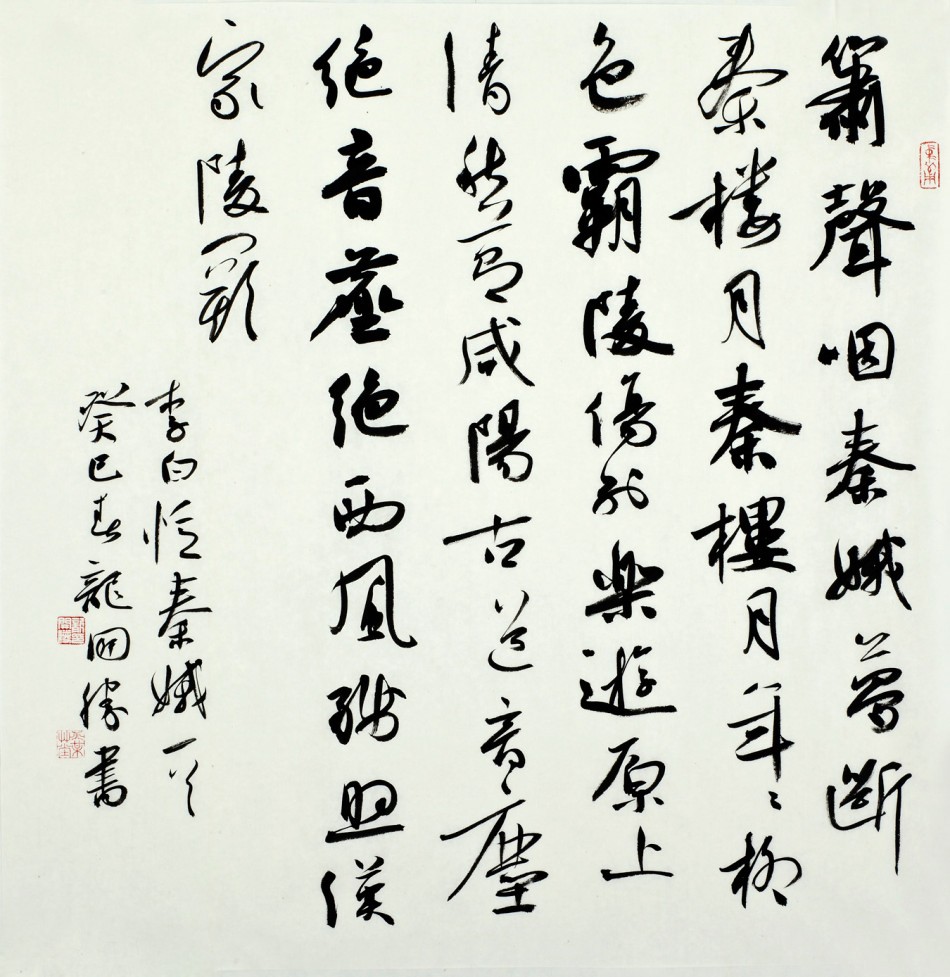 簫聲咽秦娥夢斷
秦楼月秦樓月年々柳
色霸陵傷别樂遊原上
清秋节咸陽古道音塵
絶音塵絶西風殘照漢
家陵闕
李白憶秦娥一首
癸巳春龍國勝書